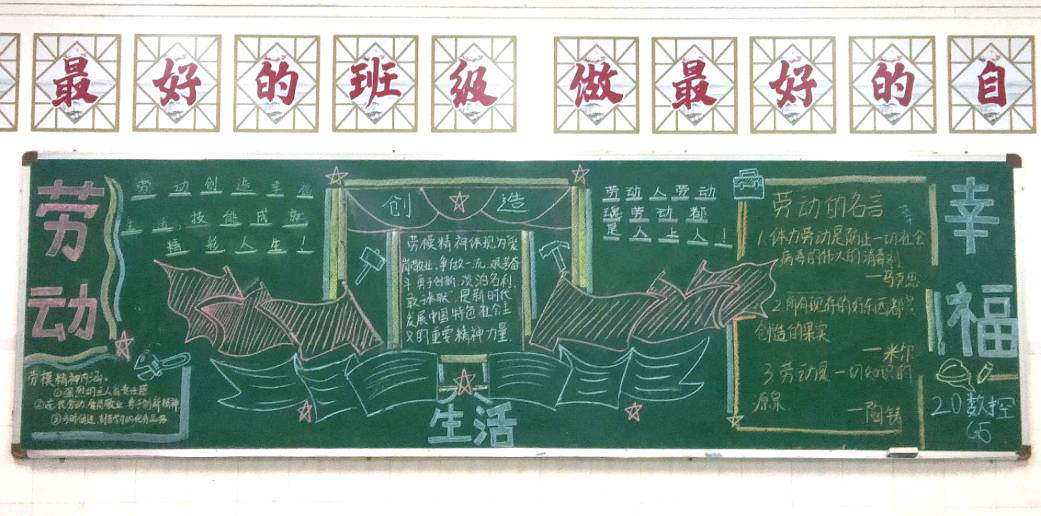 最好的班级 做最好的自
劳动
劳动创造幸福
技能成就
精彩人生！
创造
劳模精神体现为爱
岗敬业、争做一流、艰苦奋
斗、勇于创新、淡泊名利、
甘于奉献，是新时代
发展中国特色社会主
义的重要精神力量.
劳动人劳动
魂劳动都
是人上人！
劳动的名言
1.体力劳动是防止一切社会
病毒的伟大的消毒剂
—马克思
2.所有现存的好东西都是
创造的果实
—米尔
3.劳动是一切知识的
源泉
—陶铸
幸福
劳模精神内涵。
生活
20数控
G5